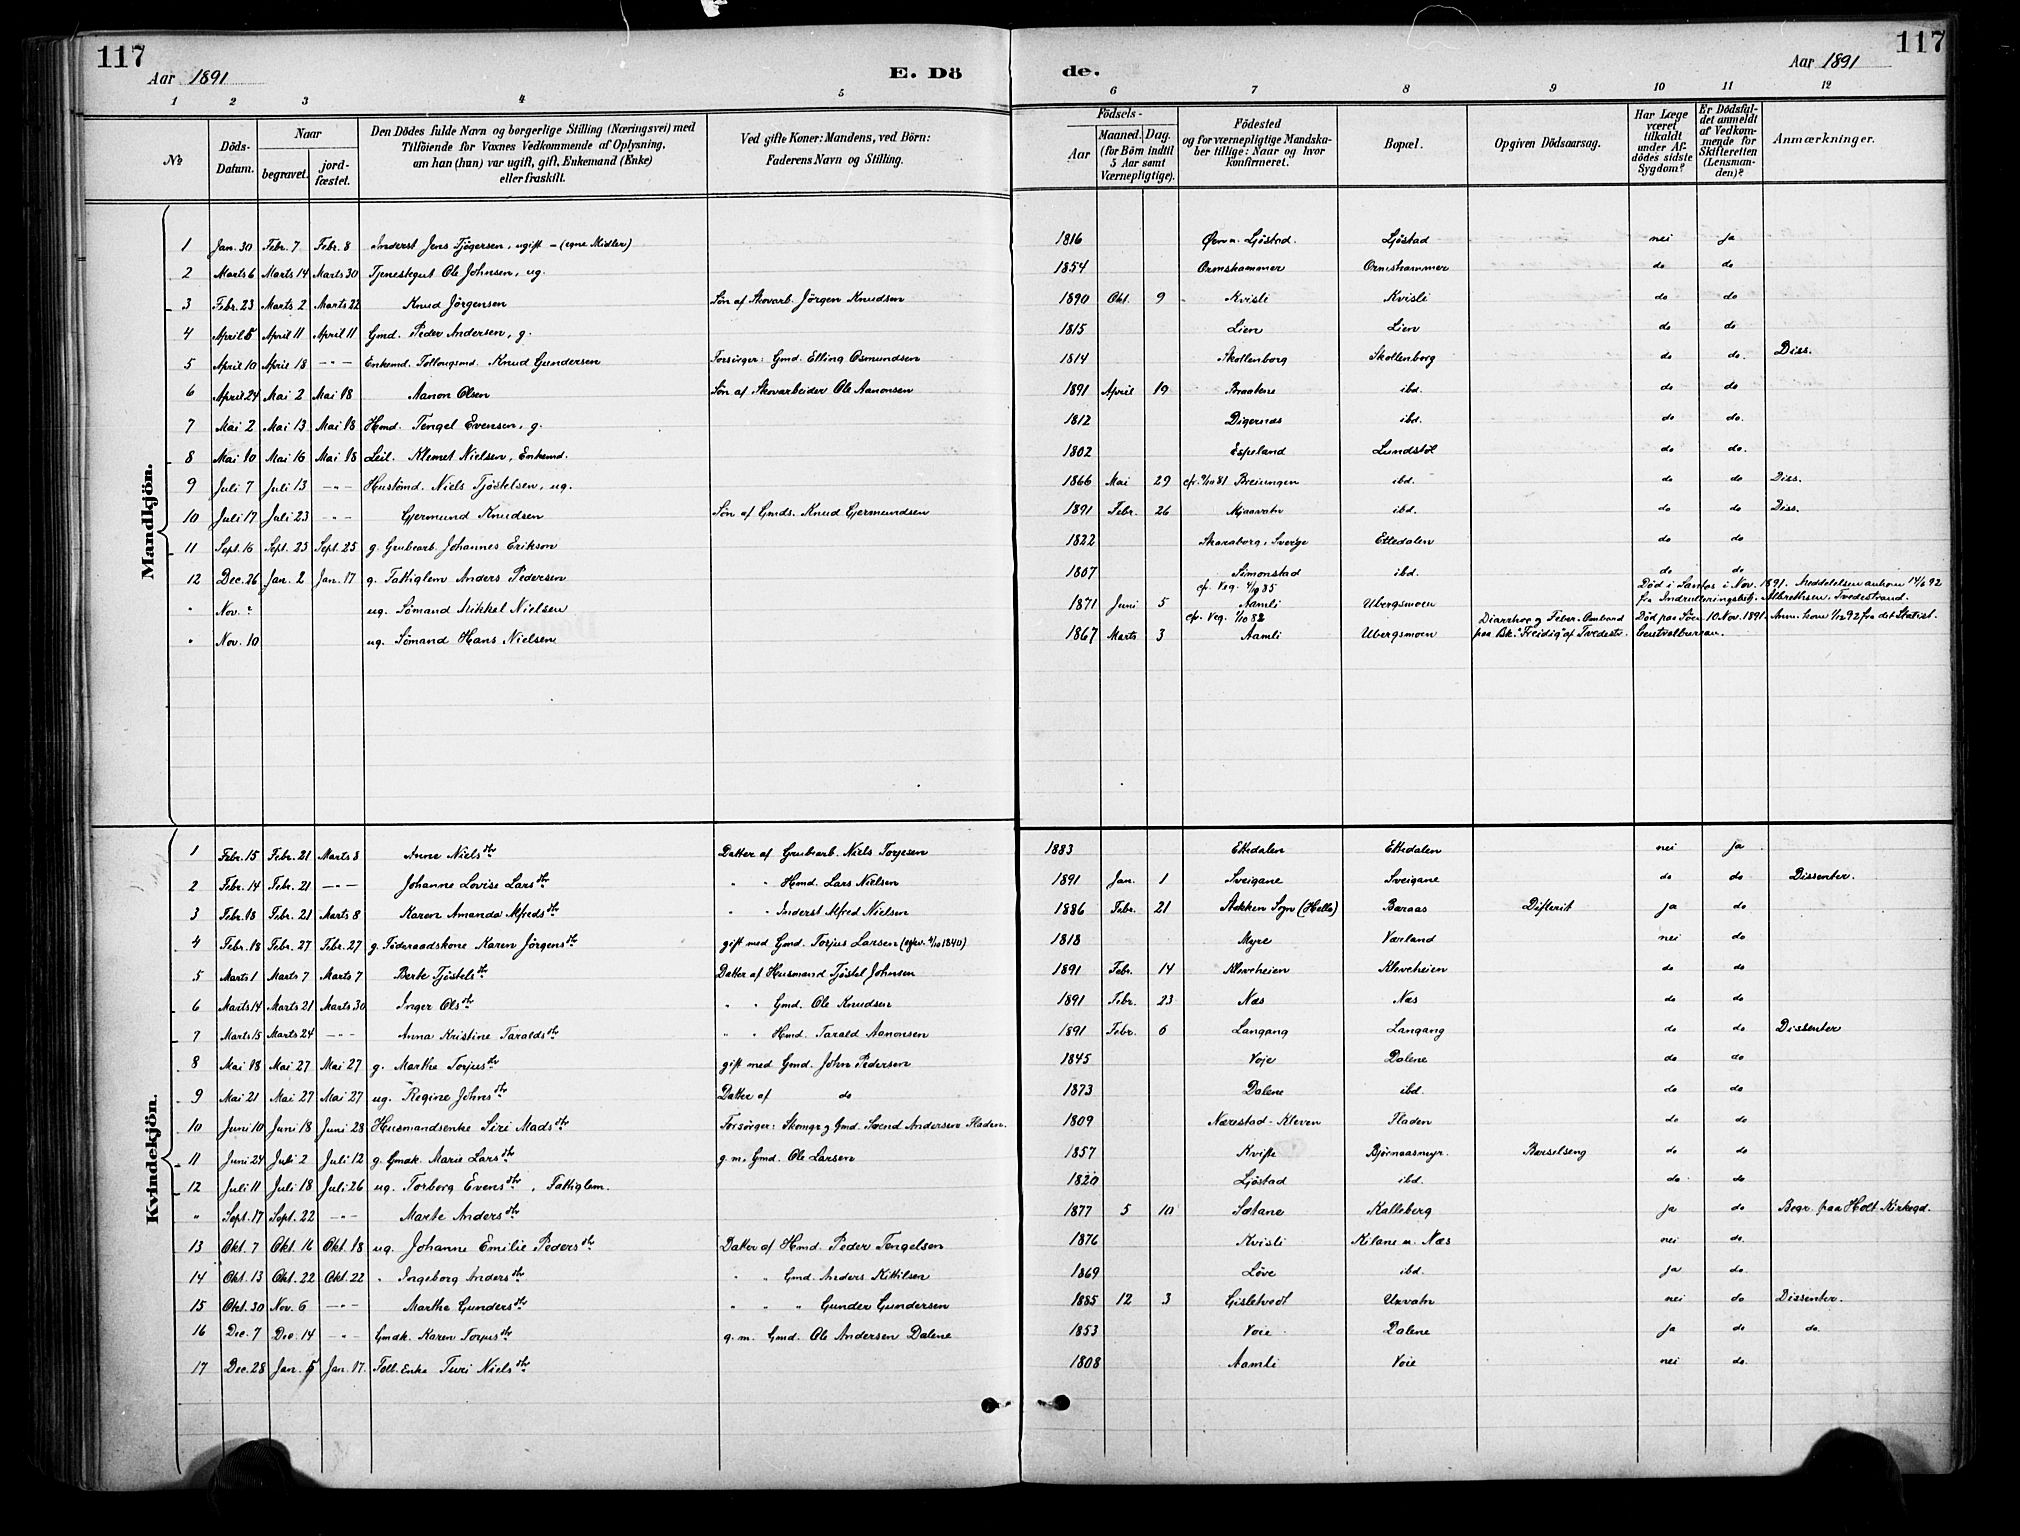 117
Aar 1891
E. Dö
de.
Aar 1891
117
1 2 3 4 5 6 7 8 9 10 11 12
№
Döds-Datum.
Naar
begravet.
jord-fæstet.
Den Dödes fulde Navn og borgerlige Stilling (Næringsvei) med
Tilföiende for Voxnes Vedkommende af Oplysning,
om han (hun) var ugift, gift, Enkemand (Enke)
eller fraskilt.
Ved gifte Koner: Mandens, ved Börn:
Faderens Navn og Stilling.
Födsels-
Aar
Maaned. Dag.
(for Börn indtil
5 Aar samt
Værnepligtige).
Födested
og for værnepligtige Mandska-
ber tillige: Naar og hvor
konfirmeret.
Bopæl.
Opgiven Dödsaarsag.
Har Læge
været
tilkaldt
under Af-
dödes sidste
Sygdom?
Er Dödsfal-
det anmeldt
af Vedkom-
mende for
Skifteretten
(Lensman-
den)?
Anmærkninger.
Mandkjön.
1 Jan. 30 Febr. 7 Febr. 8 Inderst Jens Tjögersen, ugift - (egne Midler) 1816 Ljöstad. Ljöstad nei ja
2 Marts 6 Marts 14 Marts 30 Tjenestegut Ole Johnsen, ug. 1854 Ormshammer Ormshammer do do
3 Febr. 23 Marts 2 Marts 22 Knud Jörgensen Sön af Skovarb. Jörgen Knudsen 1890 Okt. 9 Kvisli Kvisli do do
4 April 5 April 11 April 11 Gmd. Peder Andersen, g. 1815 Lien Lien do do
5 April 10 April 18 -"- Enkemd. Knud Gundersen Forsörger: Gmd. Elling Osmundsen 1814 Skollenborg Skollenborg do do. Diss.
6 April 24 Mai 2 Mai 18 Aanon Olsen Sön af Skovarbeider Ole Aanonsen 1891 April 19 Braatene ibd. do do
7 Mai 2 Mai 13 Mai 18 Hmd. Tengel Evensen, g. 1812 Digernæs ibd. do do.
8 Mai 10 Mai 16 Mai 18 Leil. Klemet Nielsen, Enkemd. 1802 Espeland Lundstöl do do.
9 Juli 7 Juli 13 -"- Niels Tjöstelsen, ug. 1866 Mai 29 Breiungen ibd. do do Diss.
10 Juli 17 Juli 23 -"- Gjermund Knudsen Sön af Gmds. Knud Gjermundsen 1891 Febr. 26 Mjaavatn ibd. do do Diss.
11 Sept. 16 Sept. 25 Sept. 25 g. Grubearb. Johannes Erikson 1822 Skaraborg, Sverge Ettedalen do do
12 Dec. 26 Jan. 2 Jan. 17 g. Fattiglem Anders Pedersen 1807 Simonstad ibd. do do
" Nov. ? ug. Sömand Mikkel Nielsen 1871 Juni 5 cf. Veg. 4/10 85 Aamli Ubergsmoen Död i Santos i Nov. 1891. Meddelelsen ankom 14/6 92
fra Indrulleringsbetj. Albrethsen. Tvedestrand.
" Nov. 10 ug. Sömand Hans Nielsen 1867 Marts 3 cf. Veg. 1/10 82 Aamli Ubergsmoen Diarrhoe og Feber. Ombord
paa Bk. "Freidig" af Tvedestr. Död paa Söen 10 Nov. 1891. Anm. kom 1/12 92 fra det Statist.
Centralbureau.
Kvindekjön.
1 Febr. 15 Febr. 21 Marts 8 Anne Nielsdtr Datter af Grubearb. Niels Torjesen 1883 Ettedalen Ettedalen nei ja
2 Febr. 14 Febr. 21 -"- Johanne Lovise Larsdtr " " Hmd. Lars Nielsen 1891 Jan. 1 Sveigane Sveigane do do Dissenter.
3 Febr. 18 Febr. 21 Marts 8 Karen Amanda Alfredsdtr " " Inderst Alfred Nielsen 1886 Febr. 21 Sogn (Helle) Baraas Difterit ja do
4 Febr. 18 Febr. 27 Febr. 27 g. Föderaadskone Karen Jörgensdtr gift med Gmd. Torjus Larsen 1818 Myre Værland nei do
5 Marts 1 Marts 7 Marts 7 Berte Tjöstelsdtr Datter af Husmand Tjöstel Johnsen 1891 Febr. 14 Kleveheien Kleveheien do do
6 Marts 14 Marts 21 Marts 30 Inger Olsdtr " " Gmd. Ole Knudsen 1891 Febr. 23 Næs Næs do do
7 Marts 15 Marts 24 -"- Anna Kristine Taraldsdtr " " Hmd. Tarald Aanonsen 1891 Febr. 6 Langang Langang do do Dissenter
8 Mai 18 Mai 27 Mai 27 g. Marthe Torjusdtr gift med Gmd. John Pedersen 1845 Voje Dalene do do
9 Mai 21 Mai 27 Mai 27 ug. Regine Johnsdtr Datter af do 1873 Dalene ibd. do do
10 Juni 10 Juni 18 Juni 28 Husmandsenke Siri Madsdtr Forsörger: Skomgr og Gmd. Svend Andersen Fladen. 1809 Nærestad-Kleven Fladen do do
11 Juni 24 Juli 2 Juli 12 g. Gmdk. Marie Larsdtr g. m. Gmd. Ole Larsen 1857 Kviste Björnaasmyr. Barselseng do do
12 Juli 11 Juli 18 Juli 26 ug. Torborg Evensdtr, Fattiglem. 1820 Ljöstad ibd. do do
" Sept. 17 Sept. 22 -"- Marte Andersdtr 1877 5 10 Sætane Kalleberg ja do Begr. paa Holt Kirkegd.
13 Okt. 7 Okt. 16 Okt. 18 ug. Johanne Emilie Pedersdtr Datter af Hmd. Peder Tengelsen 1876 Kvisli Kilane u. Næs nei do.
14 Okt. 13 Okt. 22 Okt. 22 " Ingeborg Andersdtr " " Gmd. Anders Kittilsen 1869 Löve ibd. ja do
15 Okt. 30 Nov. 6 -"- Marthe Gundersdtr " " " Gunder Gundersen 1885 12 3 Gisletvedt Urvatn nei do Dissenter.
16 Dec. 7 Dec. 14 -"- Gmdk. Karen Torjusdtr g. m. Gmd. Ole Andersen Dalene 1853 Voie Dalene ja do do.
17 Dec. 28 Jan. 5 Jan. 17. Enke Turi Nielsdtr 1808 Aamli Voie nei do.